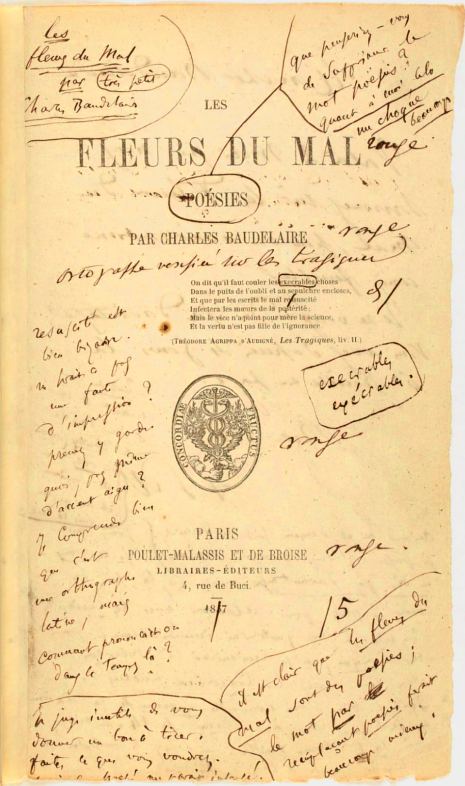 les
fleurs du Mal
par (très petit)
Charles Baudelaire
que penseriez-vous
de
mot poësies ?
quant à moi,
me choque
beaucoup
LES
FLEURS DU MAL
rouge
POÉSIES
PAR CHARLES BAUDELAIRE
rouge
ortographe sur les tragiques
On dit qu'il faut couler les execrables choses
Dans le puits de l'oubli et au sepulchre encloses,
Et que par les escrits le mal resuscité
Infectera les mœurs de la postérité;
Mais le vice n'a point pour mère la science,
Et la vertu n'est pas fille de l'ignorance
(THÉODORE AGRIPPA D'AUBIGNÉ, Les Tragiques, liv. II.)
execrables
exécrables.
resuscité est
bien bizarre.
une faute
d'impression ?
prenez y garde.
quoi, pas même
d'accent aigu ?
Je comprends bien
que c'est
une orthographe
latine, mais
comment prononçait-on
dans le temps là ?
CONCORDIÆ FRUCTUS
rouge
PARIS
POULET-MALASSIS ET DE BROISE
rouge.
LIBRAIRES-ÉDITEURS
4, rue de Buci.
1857
5
il est clair que les fleurs du
mal sont des poësies ;
le mot par
remplaçant poësies ferait
beaucoup mieux.
je juge inutile de vous
donner un bon à tirer.
faites ce que vous voudrez.